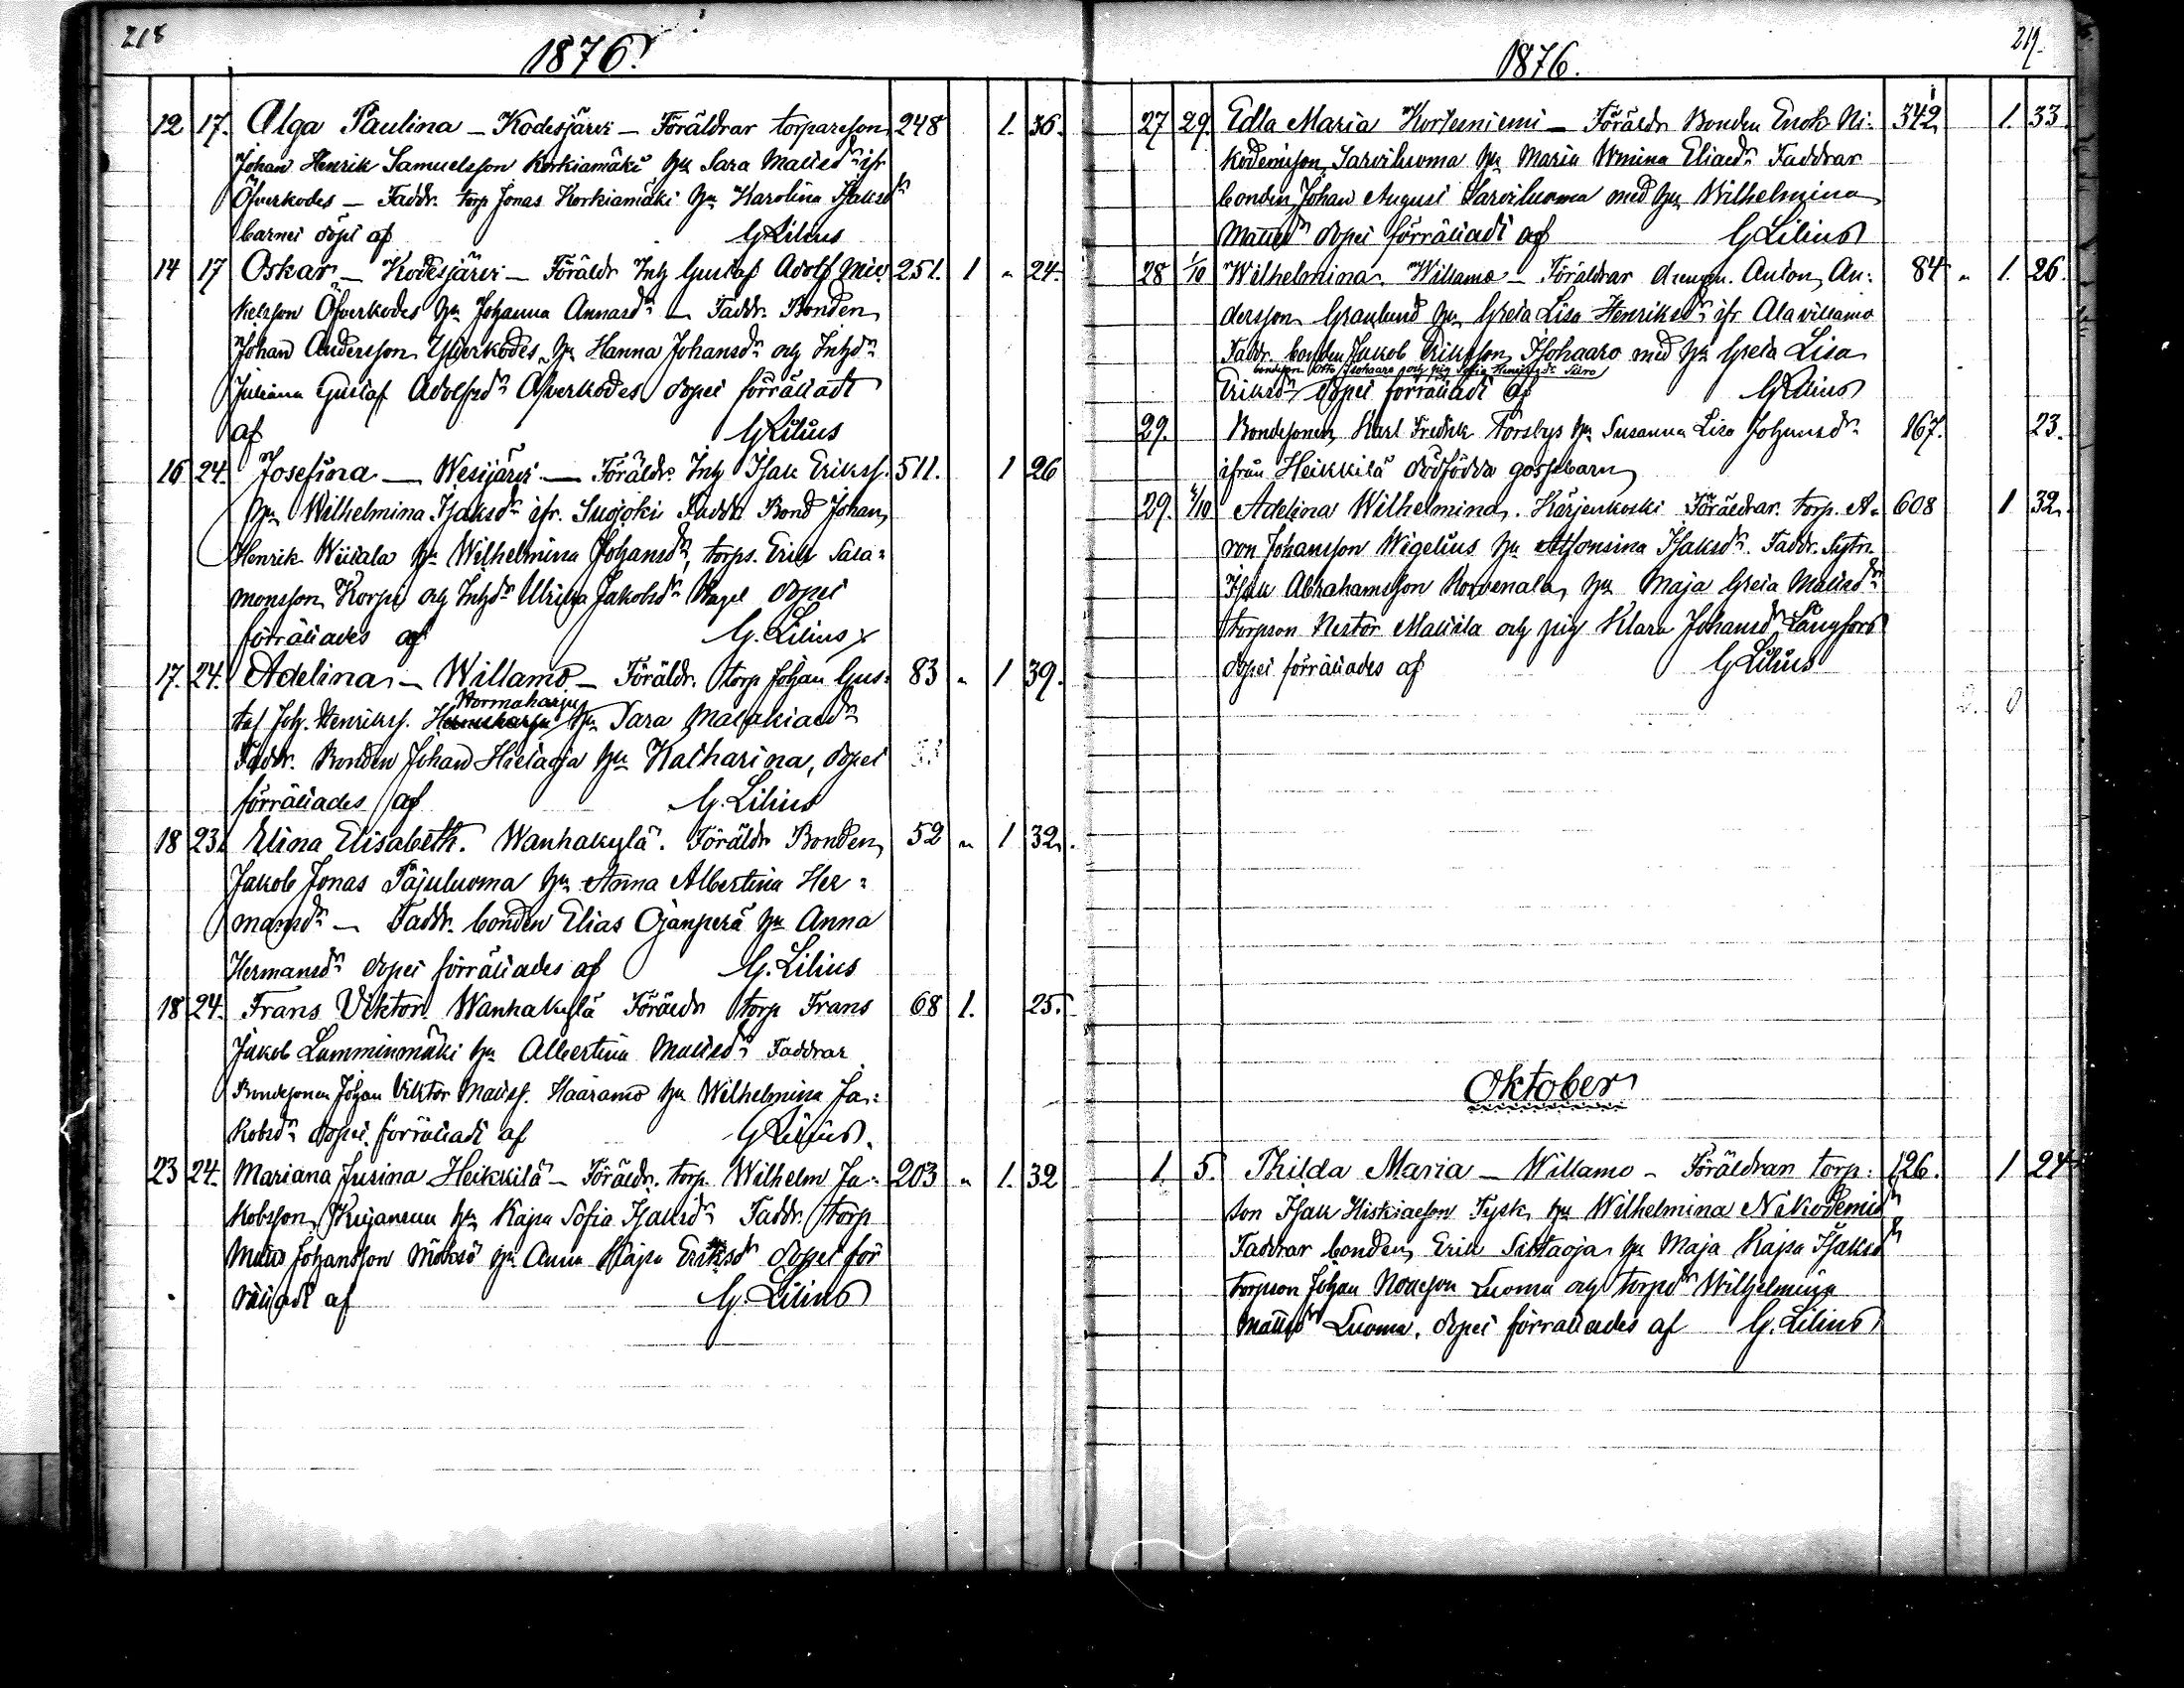 218
1876.
12 17. Olga Paulina — Kodesjärvi — Föräldrar torpareson 248 1. 36.
Johan Henrik Samuelsson Korkiamäki h:u Sara Mattsd:r ifr
Öfverkodes — Faddr. torp Jonas Korkiamäki h:u Karolina Isaksd:r
barnet döpt af G Lilius
14 17 Oskar — Kodesjärvi — Föräldr Inh Gustaf Adolf Mic: 251. 1 " 24.
kelsson Öfverkodes h:u Johanna Annasd:r — Faddr. Bonden
Johan Andersson Yliverkodes h:u Hanna Johansd:r och Inhd:r
Juliana Gustaf Adolfsd:r Öfverkodes döpet förrättadt
af G Lilius
16 24. Josefina — Wesijärvi — Föräldr. Inh Isak Erikss. 511. 1 26
h:u Wilhelmina Isaksd:r ifr. Suojoki Faddr Bond Johan
Henrik Wiitala h:u Wilhelmina Johansd:r, torps. Erik Sala=
monsson Korpi och Inhd:r Ulrika Jakobsd:r döpet
förrättades af G. Lilius
17. 24. Adelina — Willamo — Föräldr. torp Johan Gus= 83 " 1 39.
taf Joh. Henrikss. Hormaharju h:u Sara Malakiasd:r
Faddr. Bonden Johan Hietaoja h:u Katharina, döpet
förrättades af G. Lilius
18 23. Elina Elisabeth. Wanhakylä. Föräldr Bonden 52 " 1 32.
Jakob Jonas Pajuluoma h:u Anna Albertina Her=
mansd:r — Faddr. bonden Elias Ojanperä h:u Anna
Hermansd:r döpet förrättades af G. Lilius
18 24. Frans Viktor. Wanhakylä Föräldr torp Frans 68 1. 25.
Jakob Lamminmäki h:u Albertina Mattsd:r Faddrar
Bondesonen Johan Viktor Mattss. Haaramo h:u Wilhelmina Ja=
kobsd:r döpet förrättadt af G Lilius.
23 24. Mariana Jusina Heikkilä — Föräldr. torp. Wilhelm Ja= 203 " 1. 32
kobsson Kujansuu h:u Kajsa Sofia Isaksd:r Faddr. torp
Matts Johansson Möksö h:u Anna Kajsa Eriksd:r döpet för
rättadt af G. Lilius
219.
1876.
27 29. Edla Maria Kortesniemi — Föräldr Bonden Enok Ni= 342 1. 33.
kodemusson Sarviluoma h:u Maria Wmina Eliasd:r Faddrar
bonden Johan August Sarviluoma med h:u Wilhelmina
Mattsd:r döpet förrättadt af G Lilius
28 1/10 Wilhelmina. Willamo — Föräldrar drengen. Anton An= 84 " 1. 26.
dersson Granlund h:u Greta Lisa Henriksd:r ifr Alavillamo
Faddr. bonden Jakob Eriksson Isohaaro med h:u Greta Lisa
bondeson Otto Isohaaro och pig Sofia Henriksd:r
Eriksd:r döpet förrättadt af G Lilius
29. Bondesonen Karl Fredrik Forsbys h:u Susanna Lisa Johansd:r 167. 23.
ifrån Heikkilä dödfödda gossebarn
29. 1/10 Adelina Wilhelmina. Kärjenkoski Föräldrar. torp. A= 608 1 32.
ron Johansson Wigelius h:u Alfonsina Isaksd:r. Faddr. Sytn.
Isak Abrahamsson Korvenala, h:u Maja Greta Mattsd:r
torpson Nestor Mattila och pig Klara Johansd:r Långfors
döpet förrättades af G Lilius
Oktober
1. 5. Thilda Maria — Willamo — Föräldrar torp: 126. 1 24
son Isak Hiskiasson Tysk h:u Wilhelmina Nikodemisd:r
Faddrar bonden Erik Siltaoja h:u Maja Kajsa Isaksd:r
torpson Johan Luoma och torpd:r Wilhelmina
Mattsd:r Luoma. döpet förrättades af G. Lilius